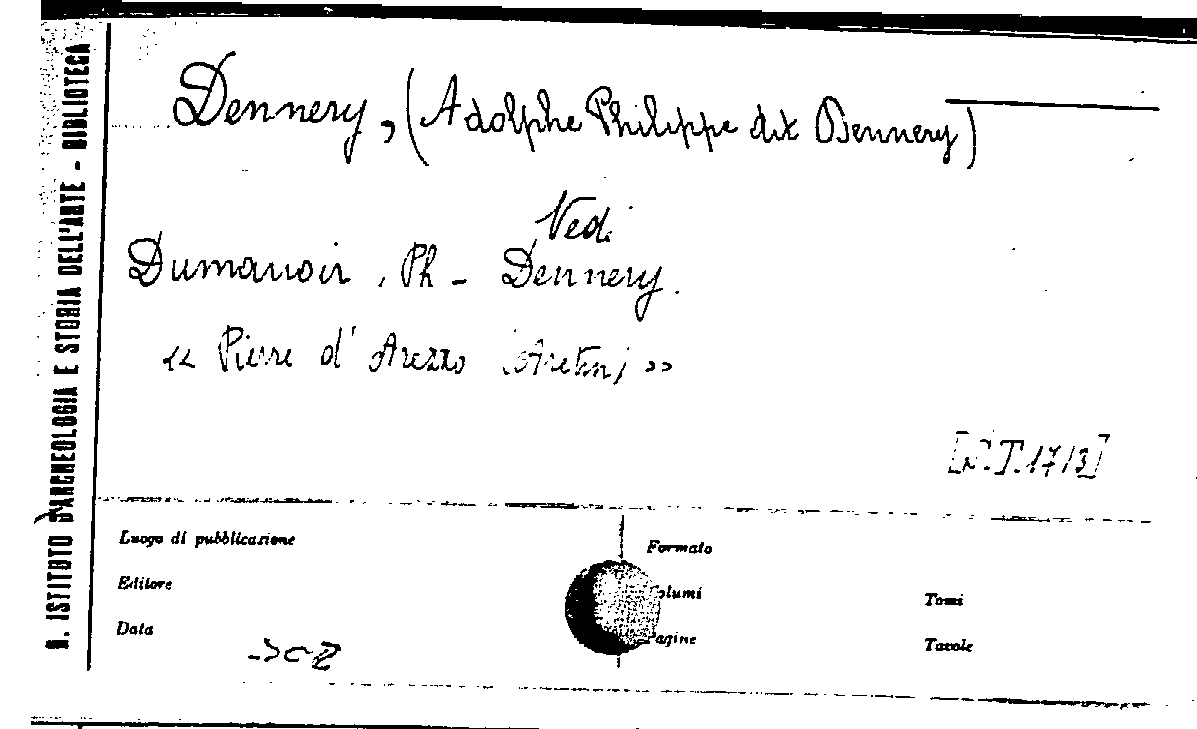 R. ISTITUTO D'ARCHEOLOGIA E STORIA DELL'ARTE - BIBLIOTECA
Dennery, (Adolphe Philippe dit Dennery)
Vedi
Dumanoir, Ph - Dennery.
« Pierre d'Arezzo (Aretin) »
T.17/3]
Luogo di pubblicazione
Editore
Data
Formato
Volumi
Pagine
Tomi
Tavole